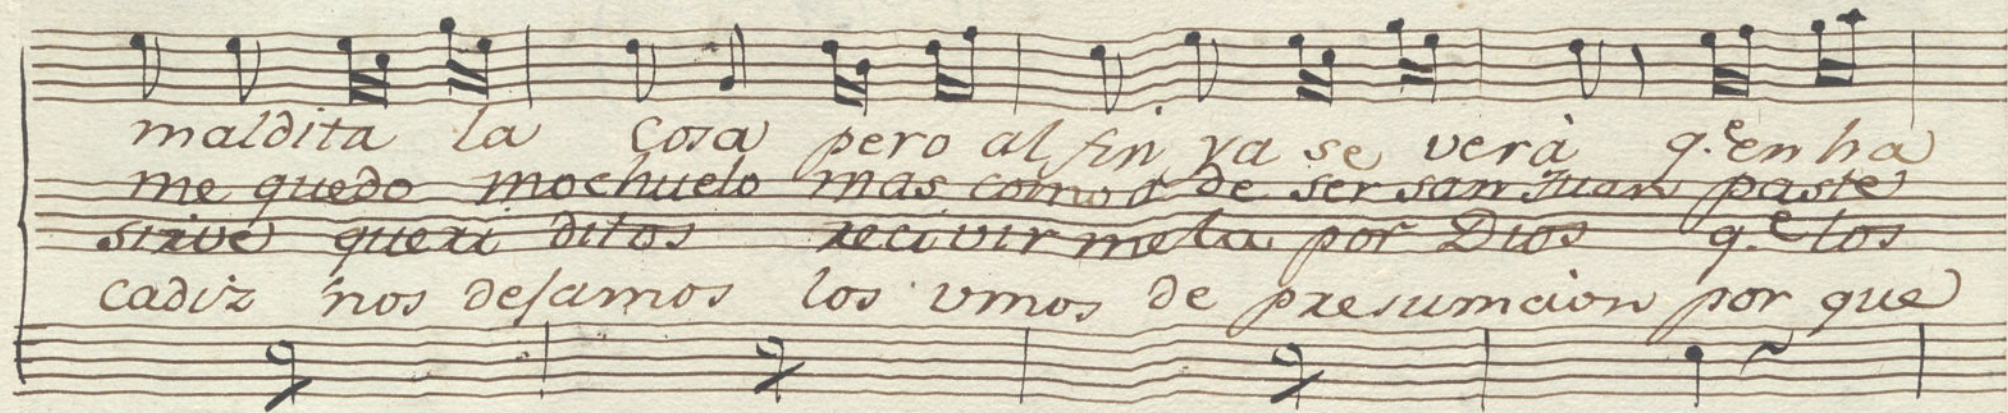 maldita la cosa pero al fin ya se verà q.e en ha
me quedo mochuelo mas como à de ser san Juan paste
sirve queri ditos recivir mela por Dios q.e los
cadiz nos dejamos los vmos de presumcion por que